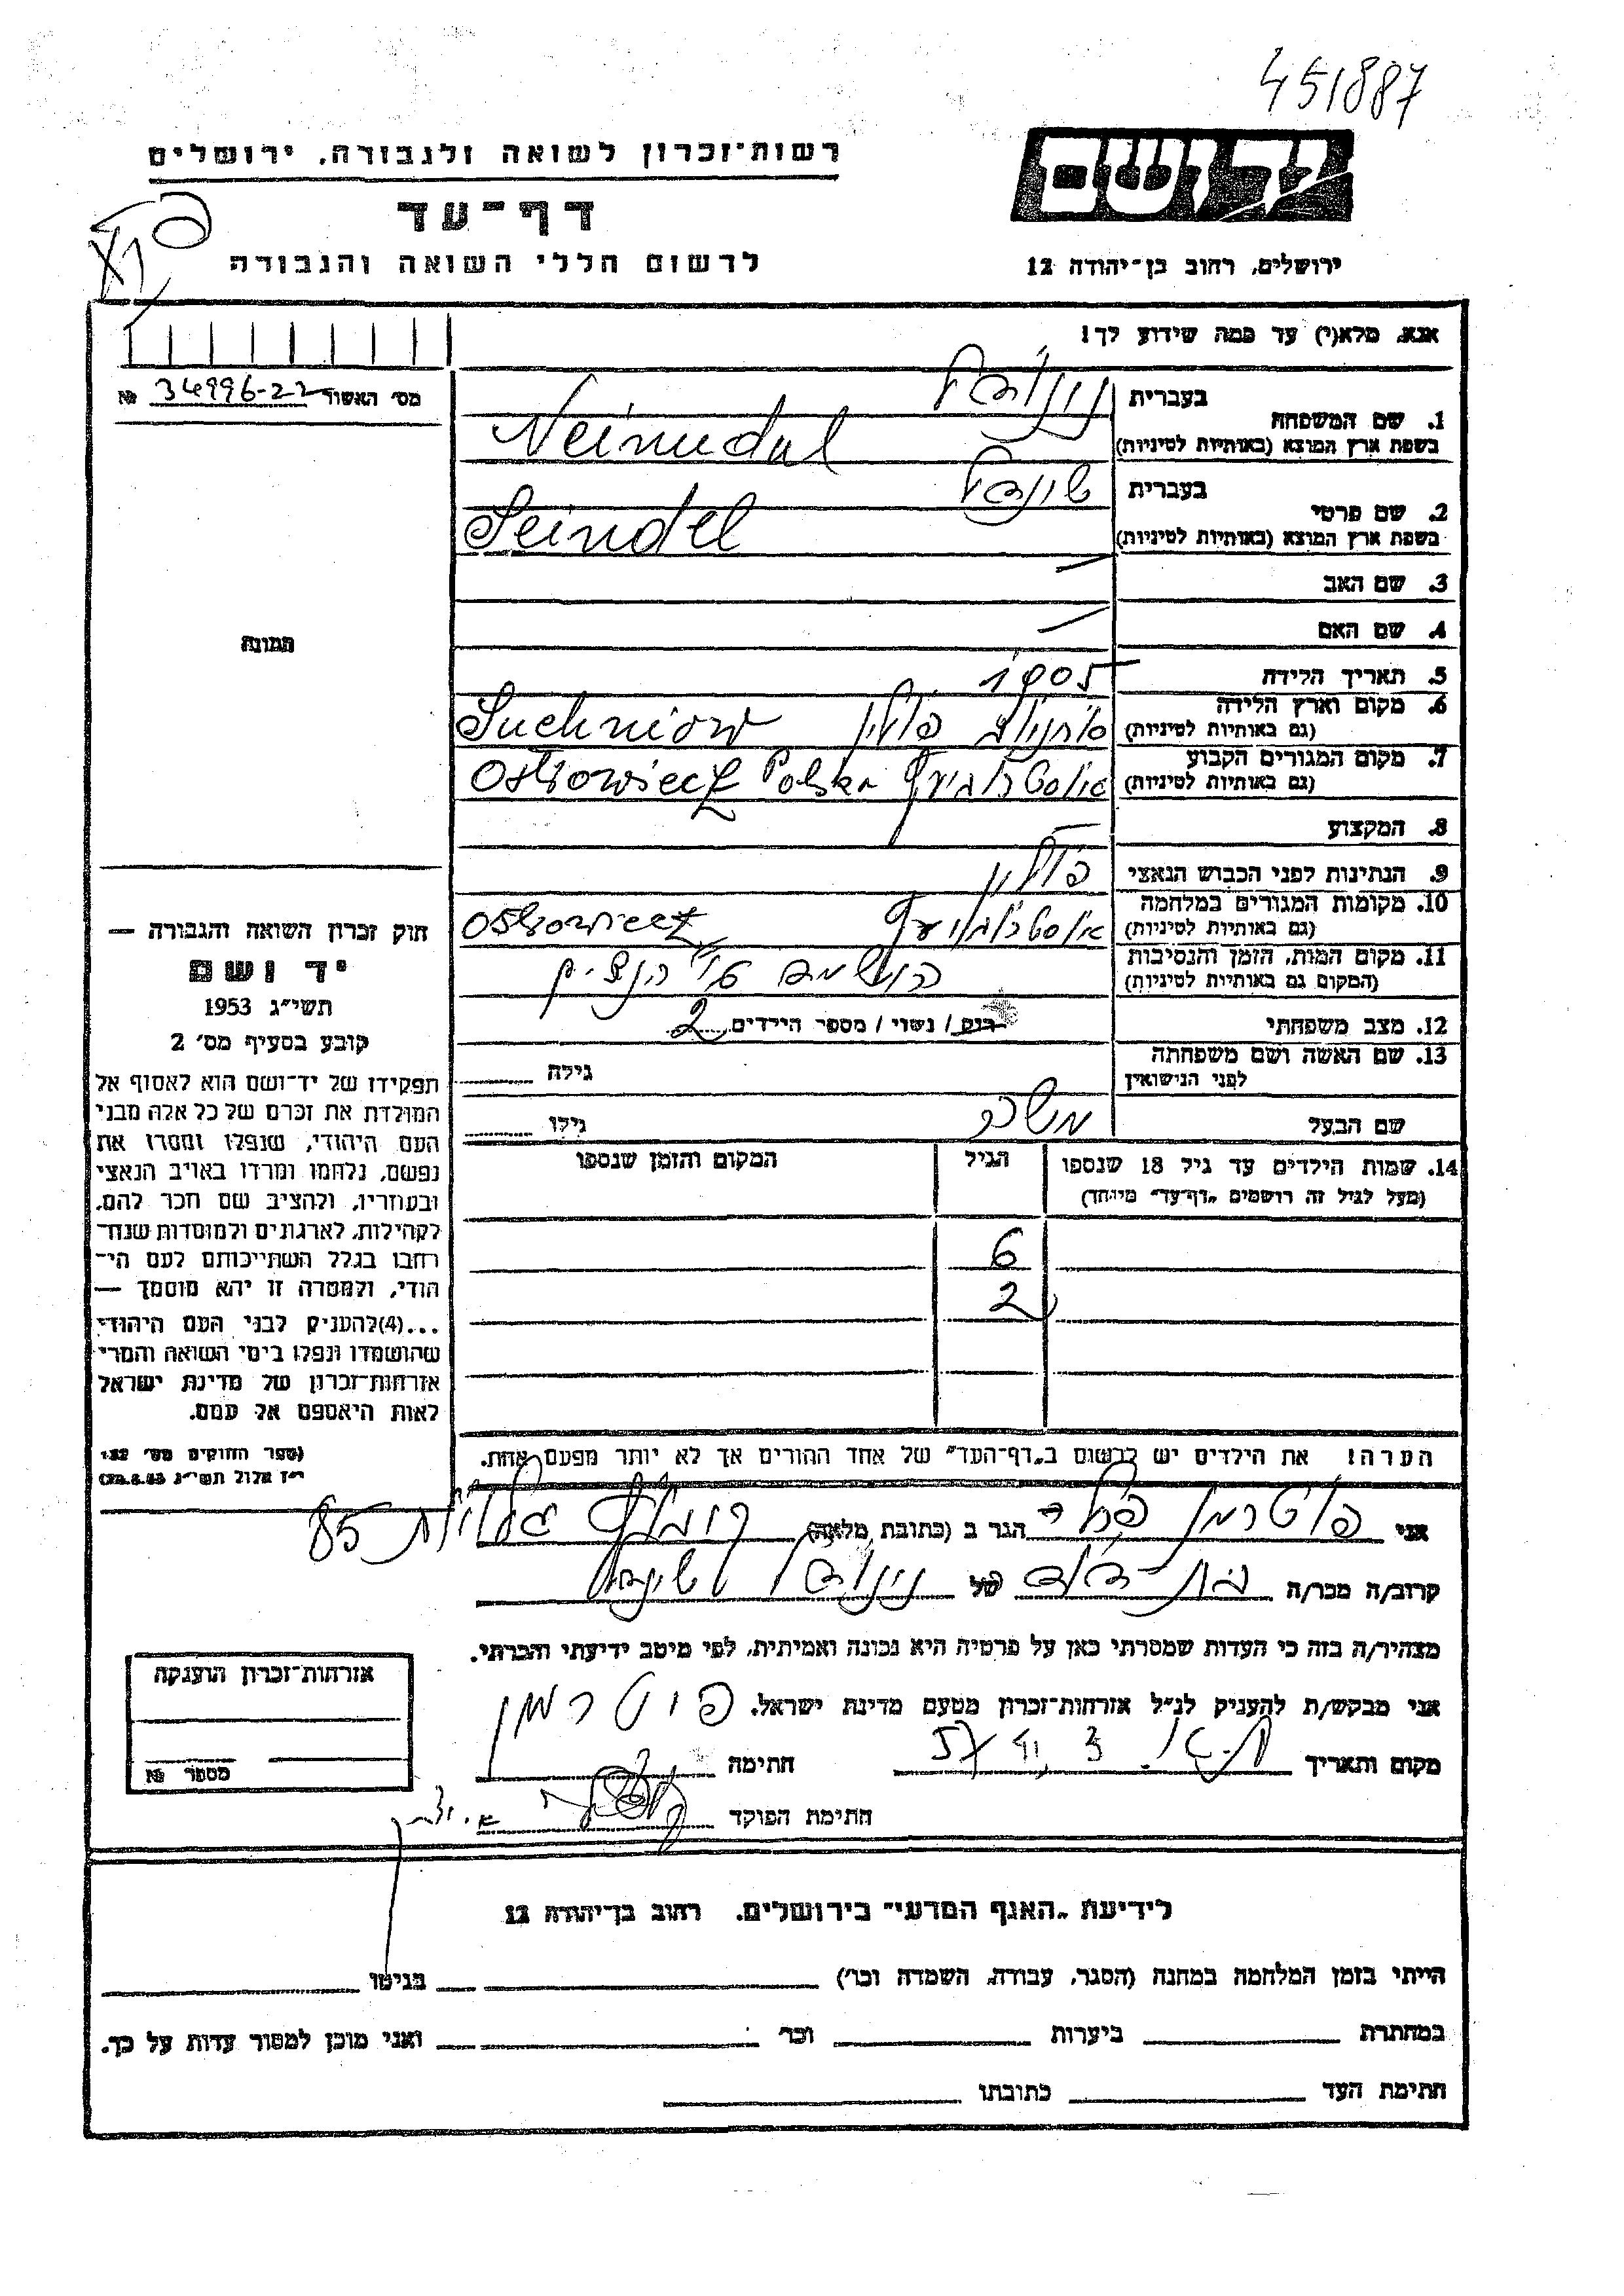 451887
יד ושם
ירושלים, רחוב בן־יהודה 12
רשות־זכרון לשואה ולגבורה, ירושלים
דף־עד
לרשום חללי השואה והגבורה
אנא, מלא(י) עד כמה שידוע לך!
מס' האשור 34996-22 №
בעברית
1. שם המשפחה
Neinudal
בשפת ארץ המוצא (באותיות לטיניות)
בעברית שינדל
2. שם פרטי
Seindel
בשפת ארץ המוצא (באותיות לטיניות)
3. שם האב —
4. שם האם —
5. תאריך הלידה 1905
6. מקום וארץ הלידה
(גם באותיות לטיניות) פולין Suchniow
7. מקום המגורים הקבוע
(גם באותיות לטיניות) Ostrowiecz Polska
8. המקצוע —
9. הנתינות לפני הכבוש הנאצי פולין
10. מקומות המגורים במלחמה
(גם באותיות לטיניות) Ostrowiecz
11. מקום המות, הזמן והנסיבות
(המקום גם באותיות לטיניות) הושמדה ע"י הנצים
12. מצב משפחתי רוק / נשוי / מספר הילדים 2
13. שם האשה ושם משפחתה
לפני הנישואין גילה
שם הבעל משה גילו
14. שמות הילדים עד גיל 18 שנספו הגיל המקום והזמן שנספו
(מעל לגיל זה רושמים „דף־עד" מיוחד)
6
2
הערה! את הילדים יש לרשום ב„דף־העד" של אחד ההורים אך לא יותר מפעם אחת.
תמונה
חוק זכרון השואה והגבורה —
יד ושם
תשי"ג 1953
קובע בסעיף מס' 2
תפקידו של יד־ושם הוא לאסוף אל
המולדת את זכרם של כל אלה מבני
העם היהודי, שנפלו ומסרו את
נפשם, נלחמו ומרדו באויב הנאצי
ובעוזריו, ולהציב שם וזכר להם,
לקהילות, לארגונים ולמוסדות שנח־
רבו בגלל השתייכותם לעם הי־
הודי, ולמטרה זו יהא מוסמך —
...(4) להעניק לבני העם היהודי
שהושמדו ונפלו בימי השואה והמרי
אזרחות־זכרון של מדינת ישראל
לאות היאספם אל עמם.
(ספר החוקים מס' 132
י"ז אלול תשי"ג 28.8.53)
אני פוטרמן הגר ב (כתובת מלאה) 85
קרוב/ה מכר/ה בת-דוד של שינדל
מצהיר/ה בזה כי העדות שמסרתי כאן על פרטיה היא נכונה ואמיתית, לפי מיטב ידיעתי והכרתי.
אני מבקש/ת להעניק לנ"ל אזרחות־זכרון מטעם מדינת ישראל. פוטרמן
מקום ותאריך חתימה
חתימת הפוקד
אזרחות־זכרון הוענקה
מספר №
לידיעת „האגף המדעי" בירושלים, רחוב בן־יהודה 12
הייתי בזמן המלחמה במחנה (הסגר, עבודה, השמדה וכו') בגיטו
במחתרת ביערות וכו' ואני מוכן למסור עדות על כך.
חתימת העד כתובתו